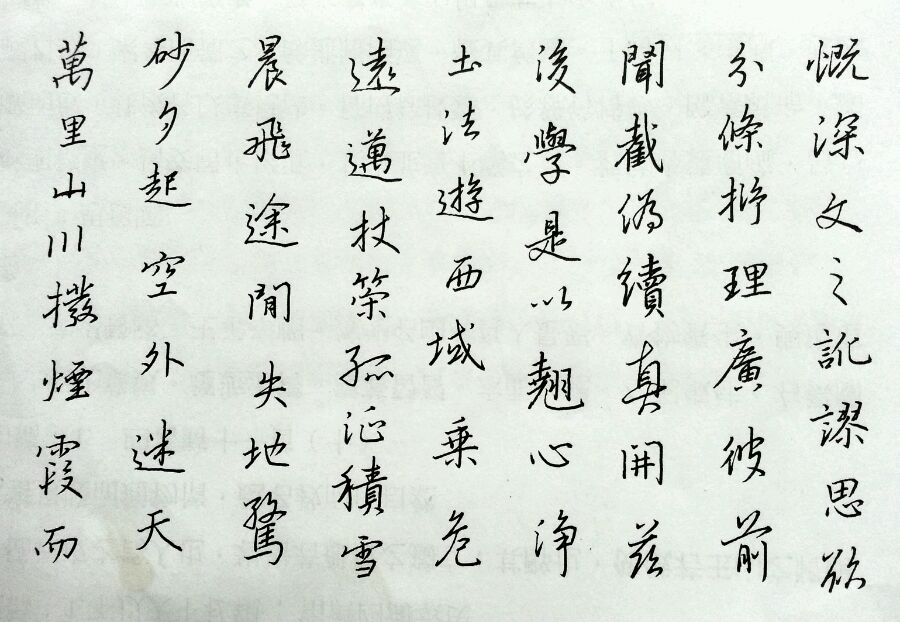 慨深文之訛謬思欲
分條抒理廣彼前
聞截偽續真開茲
後學是以翹心淨
土法遊西域乗危
遠邁杖策孤征積雪
晨飛途閒失地驚
砂夕起空外迷天
萬里山川撥煙霞而